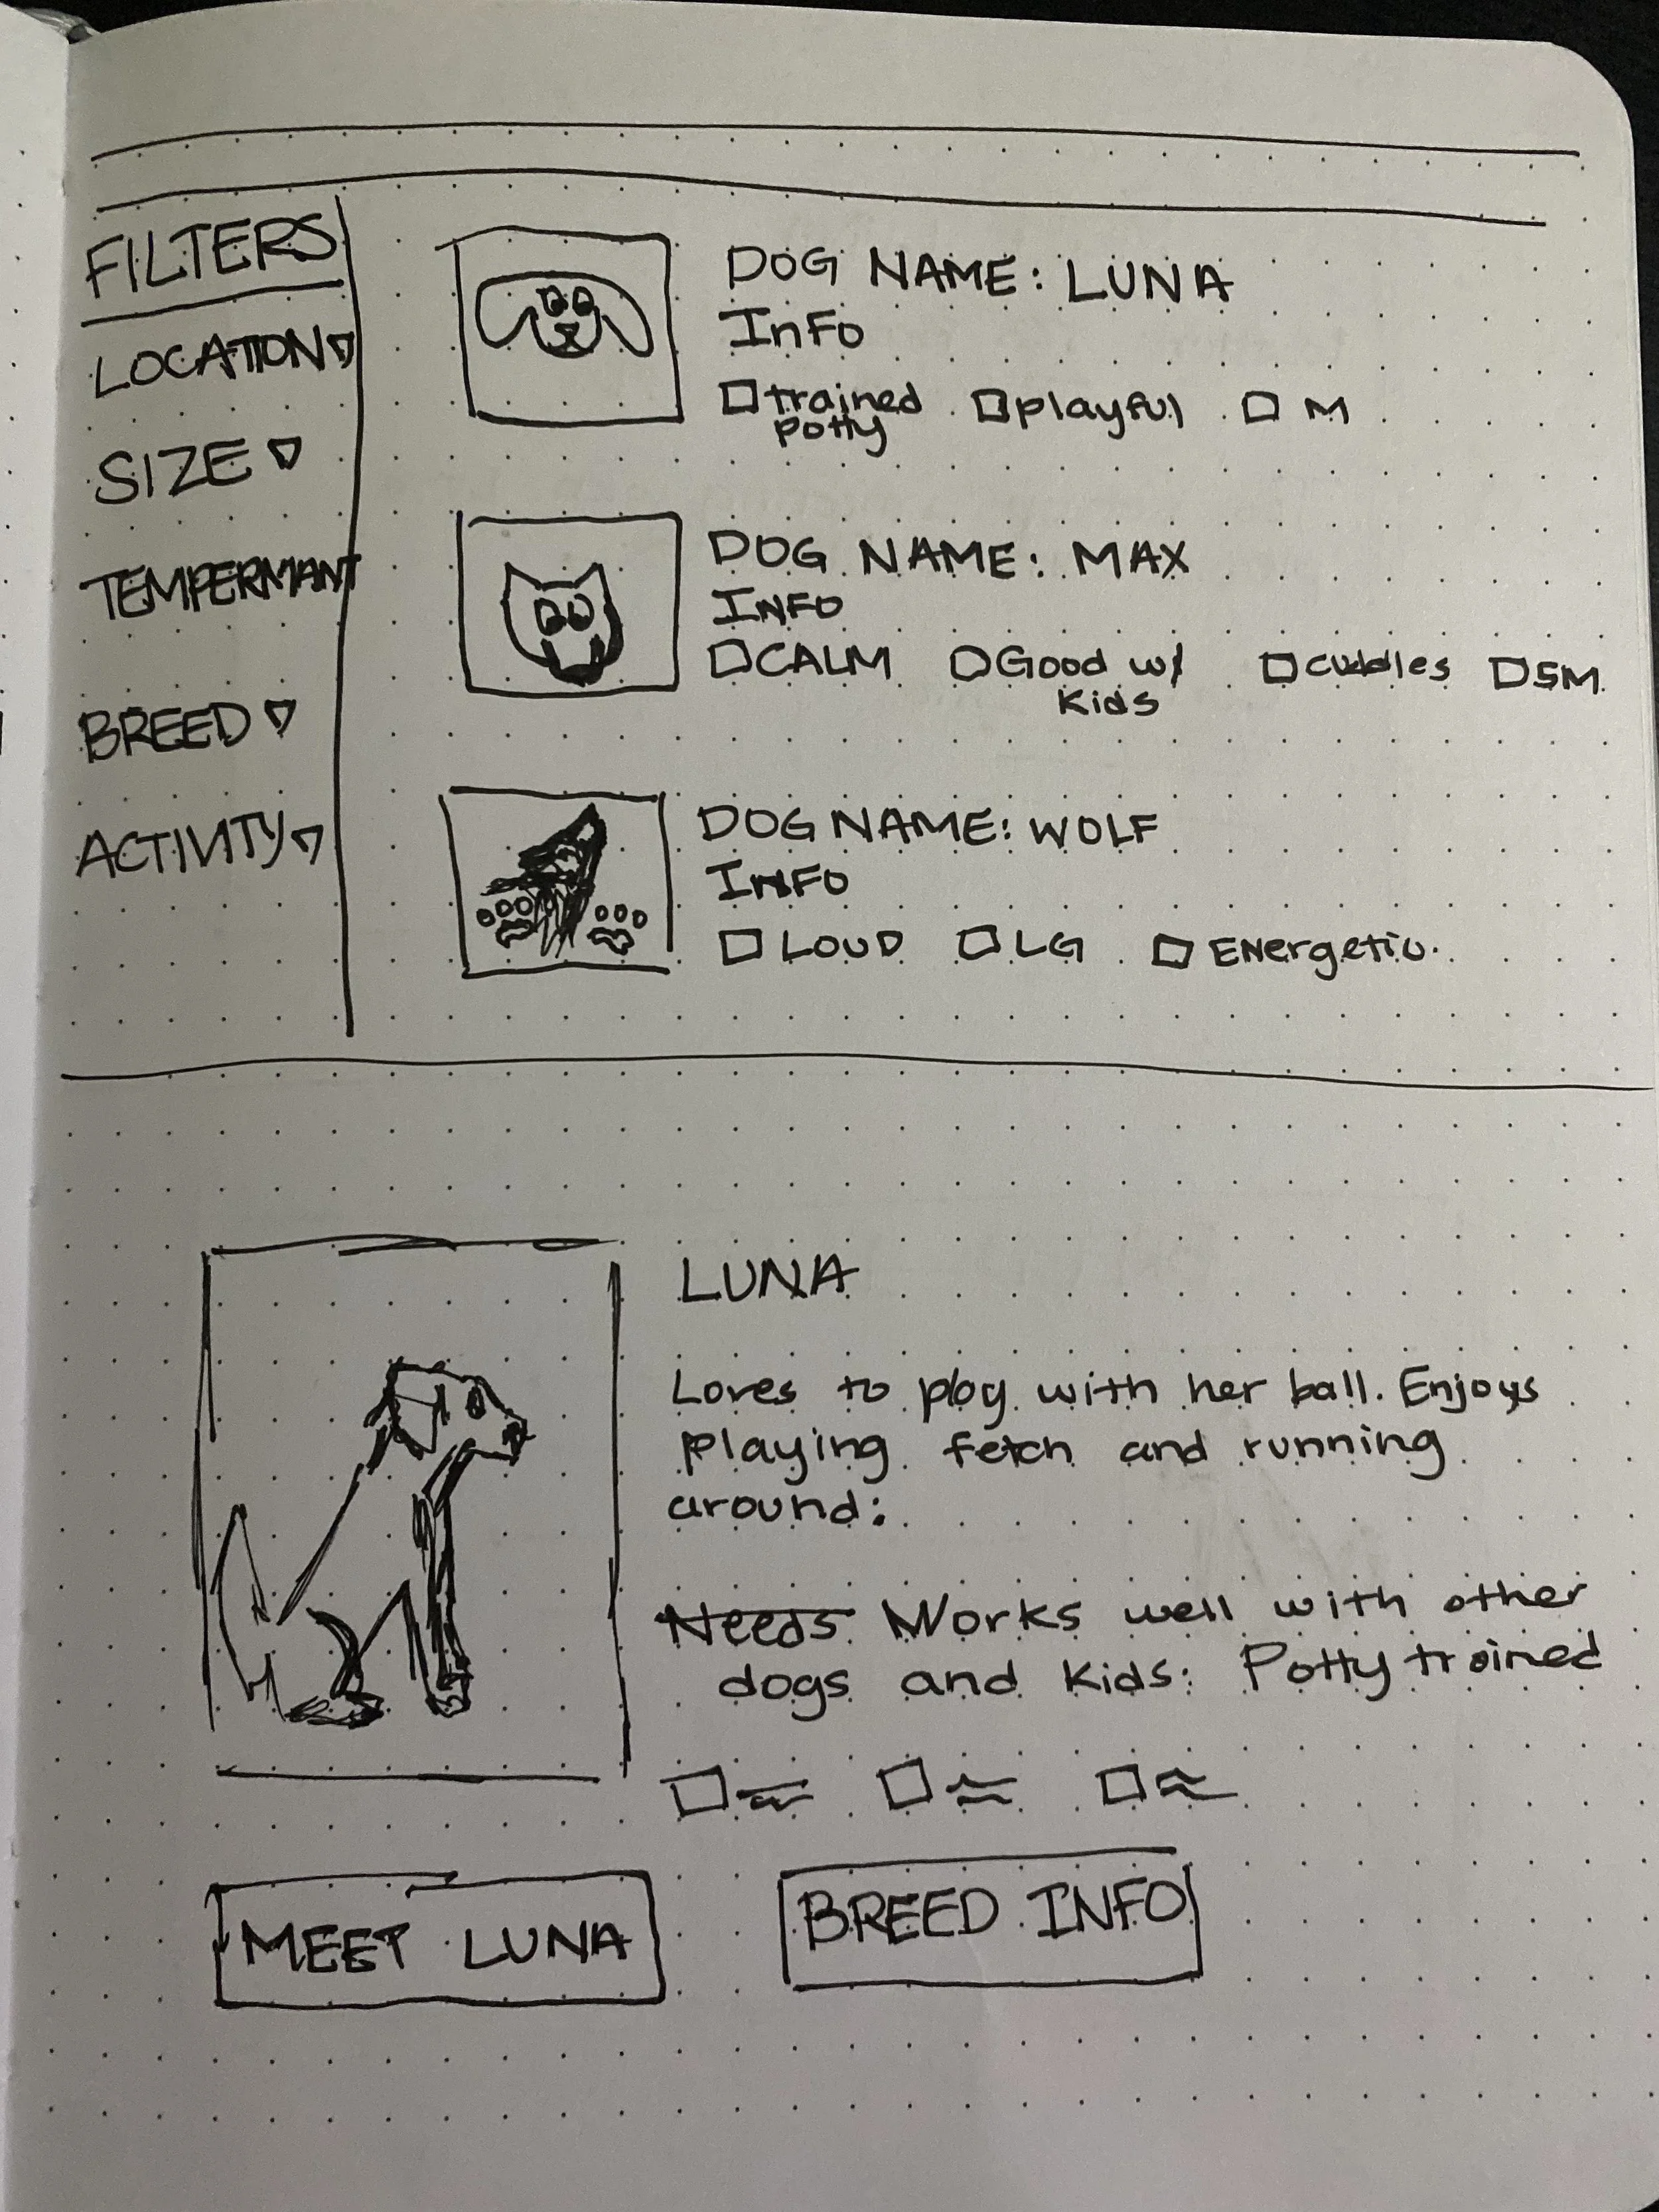 FILTERS
LOCATION
SIZE
TEMPERMANT
BREED
ACTIVITY
DOG NAME: LUNA
InFo
trained playful M
potty
DOG NAME: MAX
INFO
CALM Good w/ cuddles SM
Kids
DOG NAME: WOLF
INFO
LOUD LG ENergetic
LUNA
Loves to play with her ball. Enjoys
playing fetch and running
around:
Needs Works well with other
dogs and kids: Potty trained
MEET LUNA
BREED INFO